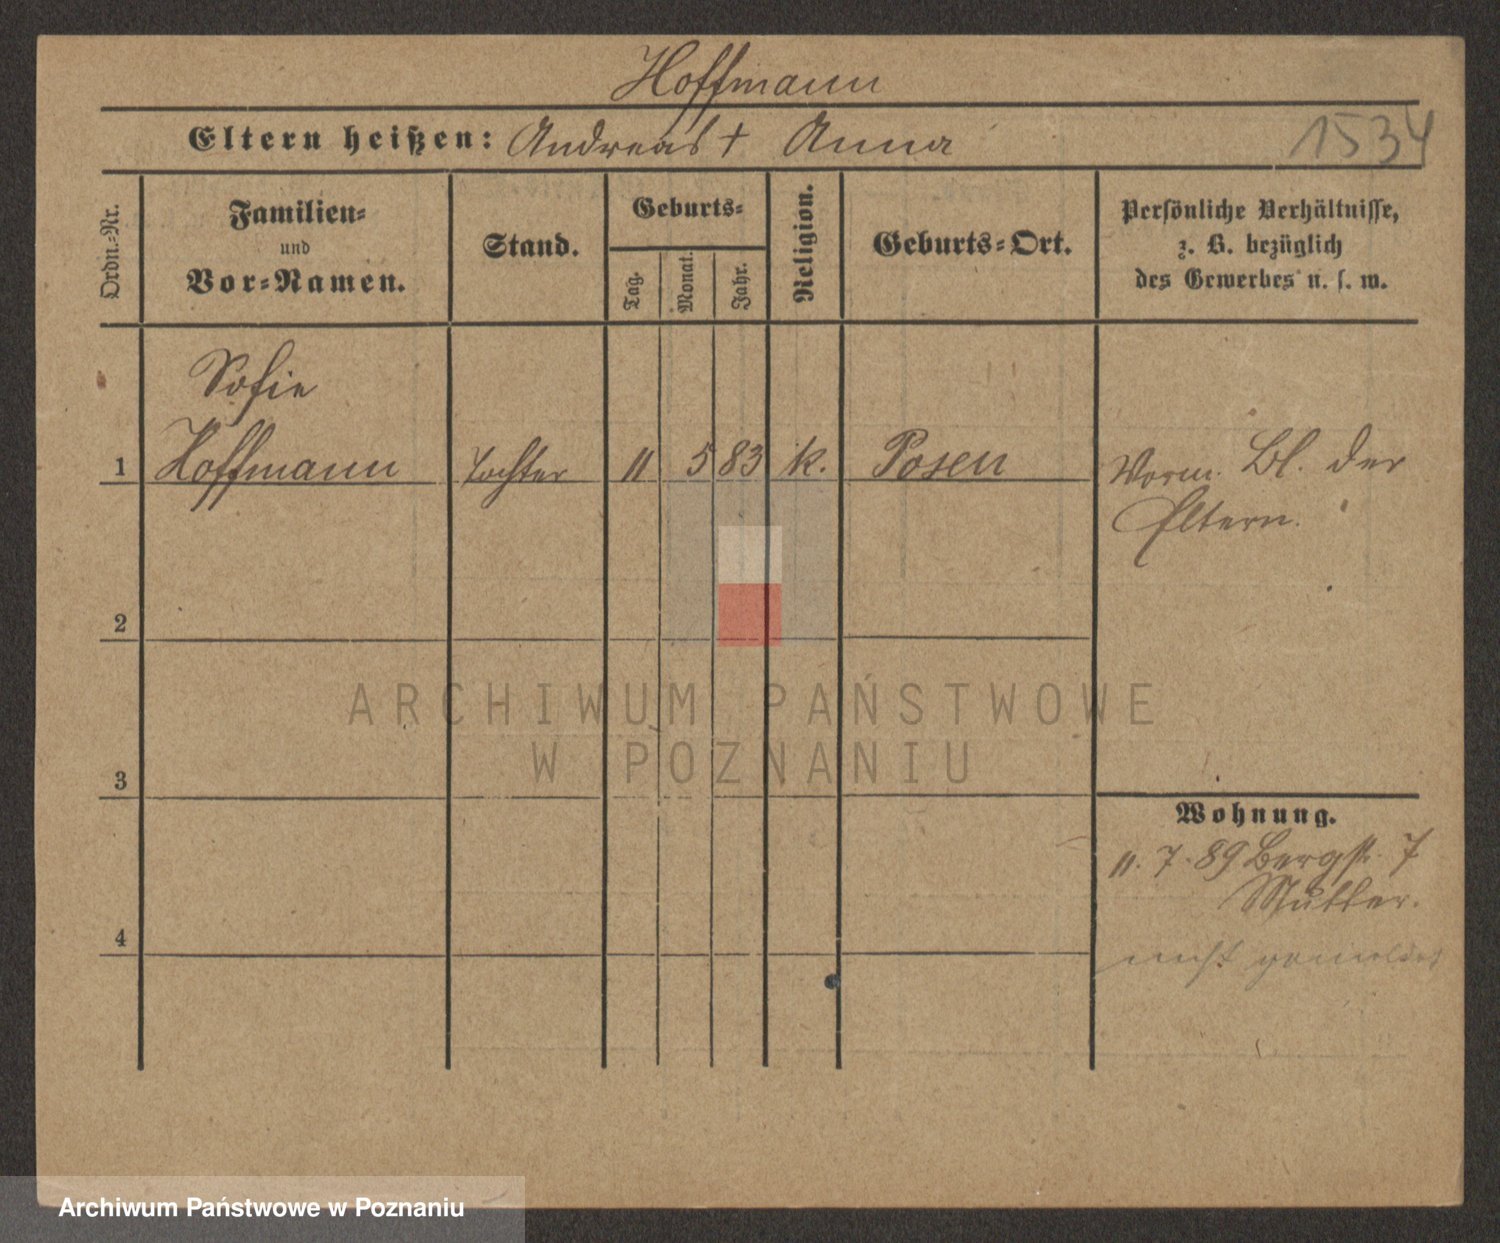 Hoffmann
Eltern heißen: Andreas † Anna
1534
Ordn.-Nr.
Familien-
und
Vor-Namen.
Stand.
Geburts-
Tag.
Monat.
Jahr.
Religion.
Geburts-Ort.
Persönliche Verhältnisse,
z. B. bezüglich
des Gewerbes u. s. w.
Sofie
1 Hoffmann Tochter 11 5 83 k. Posen Vorm. Bl. der
Eltern.
2
3
4
Wohnung.
11. 7. 89 Bergstr. 7
Mutter.
nicht gemeldet
ARCHIWUM PAŃSTWOWE
W POZNANIU
Archiwum Państwowe w Poznaniu